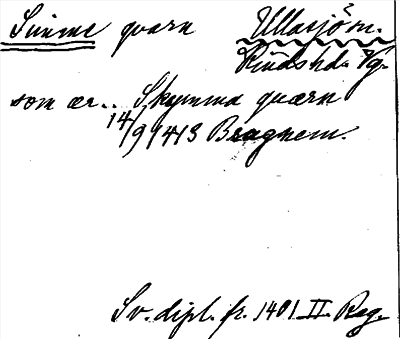 Simme qvarn Ullasjö sn.
Kinds hd. Vg.
som ær.. Skymma quærn
14/9 1413 Bragnem.
Sv. dipl. fr. 1401 II. Reg.